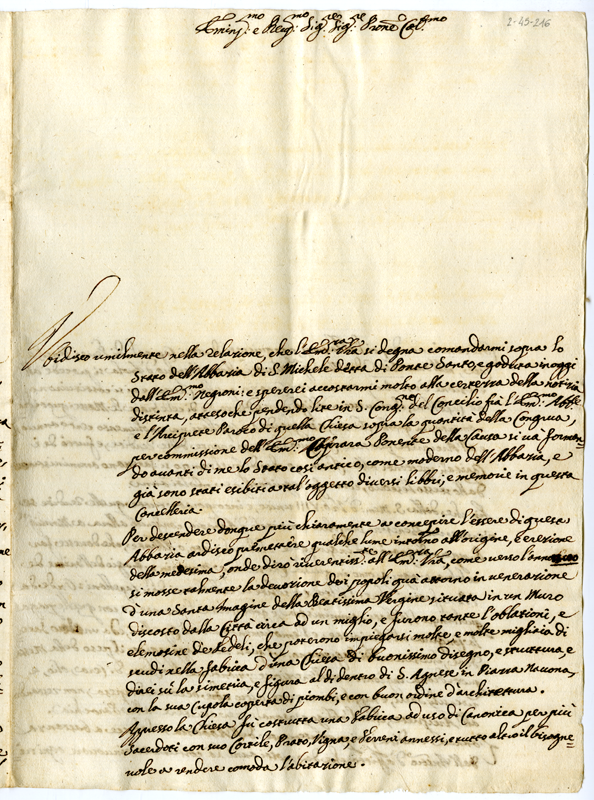 2-45-216
Emin:mo e Reu:mo Sig:re Sig:re Prone Col:mo
Vbidisco umilmente nella relazione, che l'Em:za Vra si degna comandarmi sopra lo
Stato dell'Abbazia di S. Michele detta di Ponte Santo, e goduta in oggi
dall'Em:mo Negroni: e spererei accostarmi molto alla certezza della notizia
distinta, attesoche pendendo lite in S. Cong:ne del Concilio frà l'Em:mo Abbe
e l'Arciprete Paroco di quella Chiesa sopra la quantità della Congrua,
per commissione dell'Em:mo Ponente della Causa si và forman=
do avanti di me lo Stato così antico, come moderno dell'Abbazia, e
già sono stati esibiti a tal'oggetto diversi libbri, e memorie in questa
Cancelleria.
Per descendere donque più chiaramente a concepire l'essere di questa
Abbazia ardisco premettere qualche lume intorno all'origine, et erezione
della medesima, onde dirò riverentisste all'Em:za Vra, come verso l'anno
si mosse talmente la devozione dei popoli quà attorno in venerazione
d'una Santa Imagine della Beatissima Vergine situata in un Muro
discosto dalla Città circa ad un miglio, e furono tante l'oblationi, e
elemosine de Fedeli, che poterono impiegarsi molte, e molte migliaia di
scudi nella fabrica d'una Chiesa di buonissimo disegno, e struttura, e
direi sù la simetria, e figura al di dentro di S. Agnese in Piazza Navona,
con la sua Cupola coperta di piombi, e con buon ordine d'architettura.
Appresso la Chiesa fù costrutta una Fabrica ad uso di Canonica per più
Sacerdoti con suo Cortile, Prato, Vigna, e Terreni annessi, e tutto altro il bisogne=
vole a rendere comoda l'abitazione.